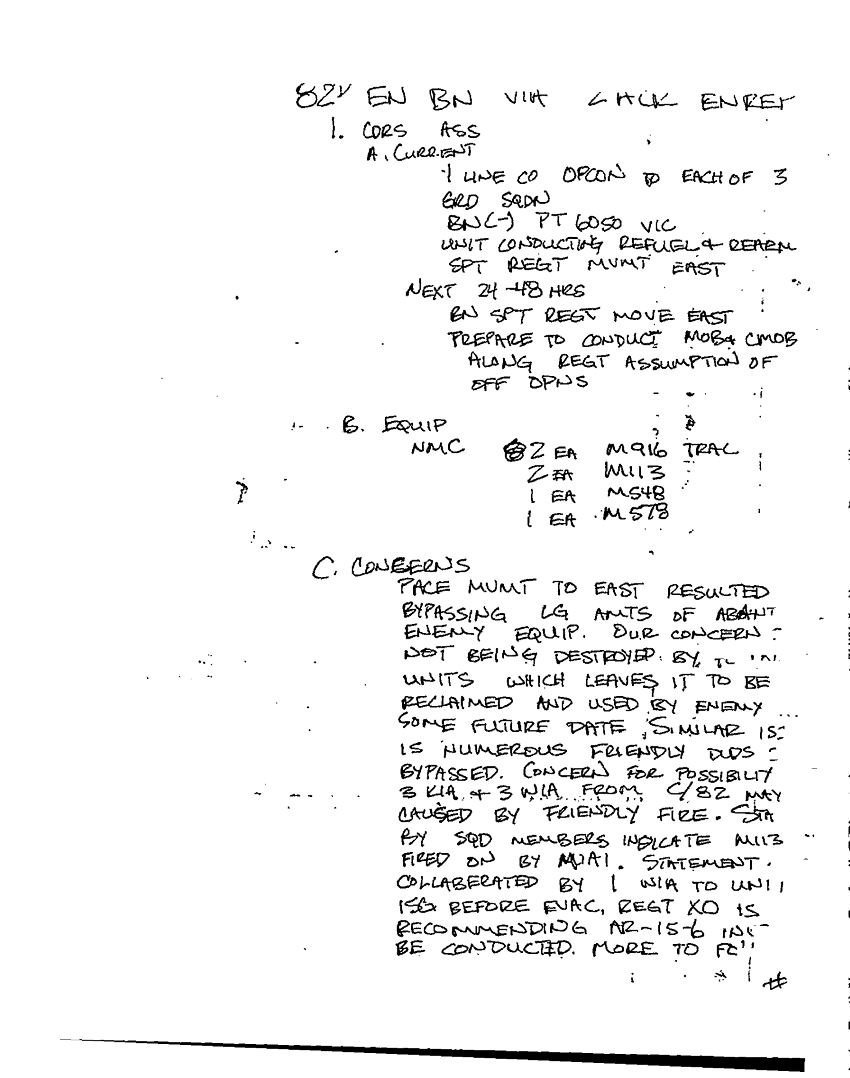 82D EN BN VIA LTC LACK ENREY
1. CDRS ASS
A. CURRENT
-1 LINE CO OPCON TO EACH OF 3
GRD SQDN
BN(-) PT 6050 VIC
UNIT CONDUCTING REFUEL & REARM
SPT REGT MVMT EAST
NEXT 24-48 HRS
BN SPT REGT MOVE EAST
PREPARE TO CONDUCT MOB & CMOB
ALONG REGT ASSUMPTION OF
OFF OPNS
B. EQUIP
NMC 2 EA M916 TRAC
2 EA M113
1 EA M548
1 EA M578
C. CONCERNS
PACE MVMT TO EAST RESULTED
BYPASSING LG AMTS OF ABANT
ENEMY EQUIP. OUR CONCERN
NOT BEING DESTROYED BY
UNITS WHICH LEAVES IT TO BE
RECLAIMED AND USED BY ENEMY
SOME FUTURE DATE. SIMILAR IS
IS NUMEROUS FRIENDLY DUDS
BYPASSED. CONCERN FOR POSSIBILITY
3 KIA & 3 WIA FROM C/82 MAY
CAUSED BY FRIENDLY FIRE. STA
BY SQD MEMBERS INDICATE M113
FIRED ON BY M1A1. STATEMENT
COLLABERATED BY 1 WIA TO UNI
1SG BEFORE EVAC, REGT XO IS
RECOMMENDING AR-15-6 INV
BE CONDUCTED. MORE TO FO
#